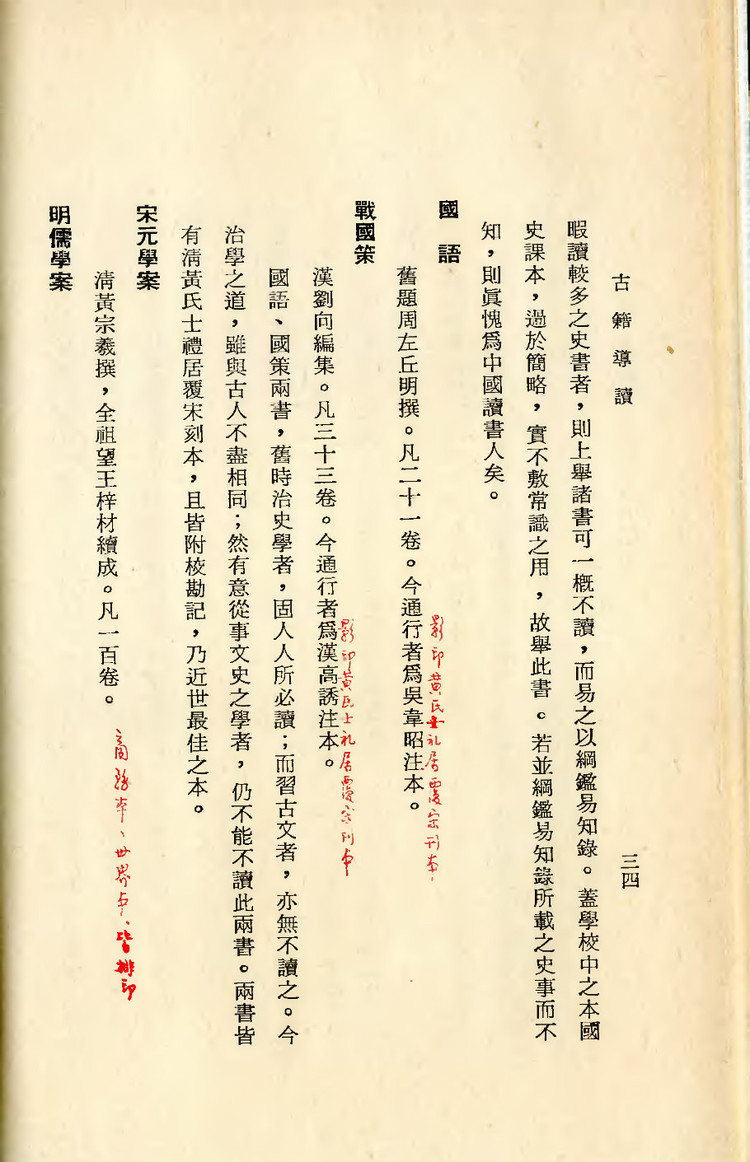 古籍導讀
三四
暇讀較多之史書者，則上舉諸書可一概不讀，而易之以綱鑑易知錄。蓋學校中之本國
史課本，過於簡略，實不敷常識之用，故舉此書。若並綱鑑易知錄所載之史事而不
知，則眞愧爲中國讀書人矣。
國語
舊題周左丘明撰。凡二十一卷。今通行者爲吳韋昭注本。
影印黃氏士礼居覆宋刊本
戰國策
漢劉向編集。凡三十三卷。今通行者爲漢高誘注本。
影印黃氏士礼居覆宋刊本
國語、國策兩書，舊時治史學者，固人人所必讀；而習古文者，亦無不讀之。今
治學之道，雖與古人不盡相同；然有意從事文史之學者，仍不能不讀此兩書。兩書皆
有清黃氏士禮居覆宋刻本，且皆附校勘記，乃近世最佳之本。
宋元學案
清黃宗羲撰，全祖望王梓材續成。凡一百卷。
商務本、世界本、皆排印
明儒學案